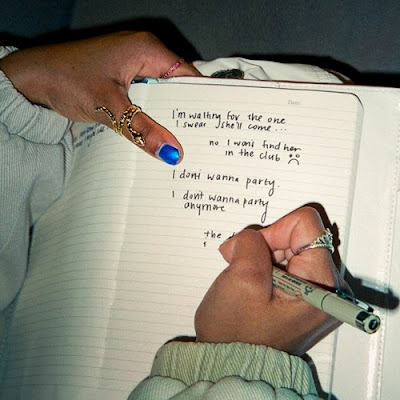 Date:
I'm waiting for the one
I swear she'll come...
no I wont find her
in the club ☹
I dont wanna party.
I dont wanna party
anymore
the